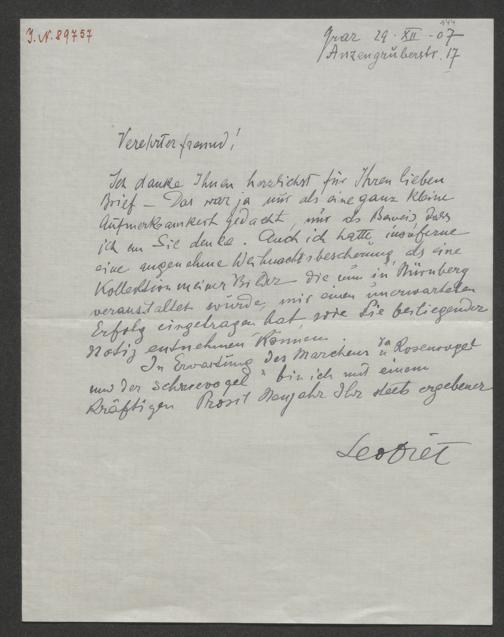 J. N. 89757
144
Graz 29. XII. 07
Anzengruberstr. 17
Verehrter Freund!
Ich danke Ihnen herzlichst für Ihren lieben
Brief – Das war ja nur als eine ganz kleine
Aufmerksamkeit gedacht, nur als Beweis dass
ich an Sie denke. Auch ich hatte insoferne
eine angenehme Weihnachtsbescherung, als eine
Kollektion meiner Bilder die nun in Nürnberg
veranstaltet wurde, mir einen unerwarteten
Erfolg eingetragen hat, wie Sie beiliegender
Notiz entnehmen können.
In Erwartung des Märchens "Rosenvogel
und der Schneevogel" bin ich mit einem
kräftigen Prosit Neujahr Ihr stets ergebener
Leo Diet